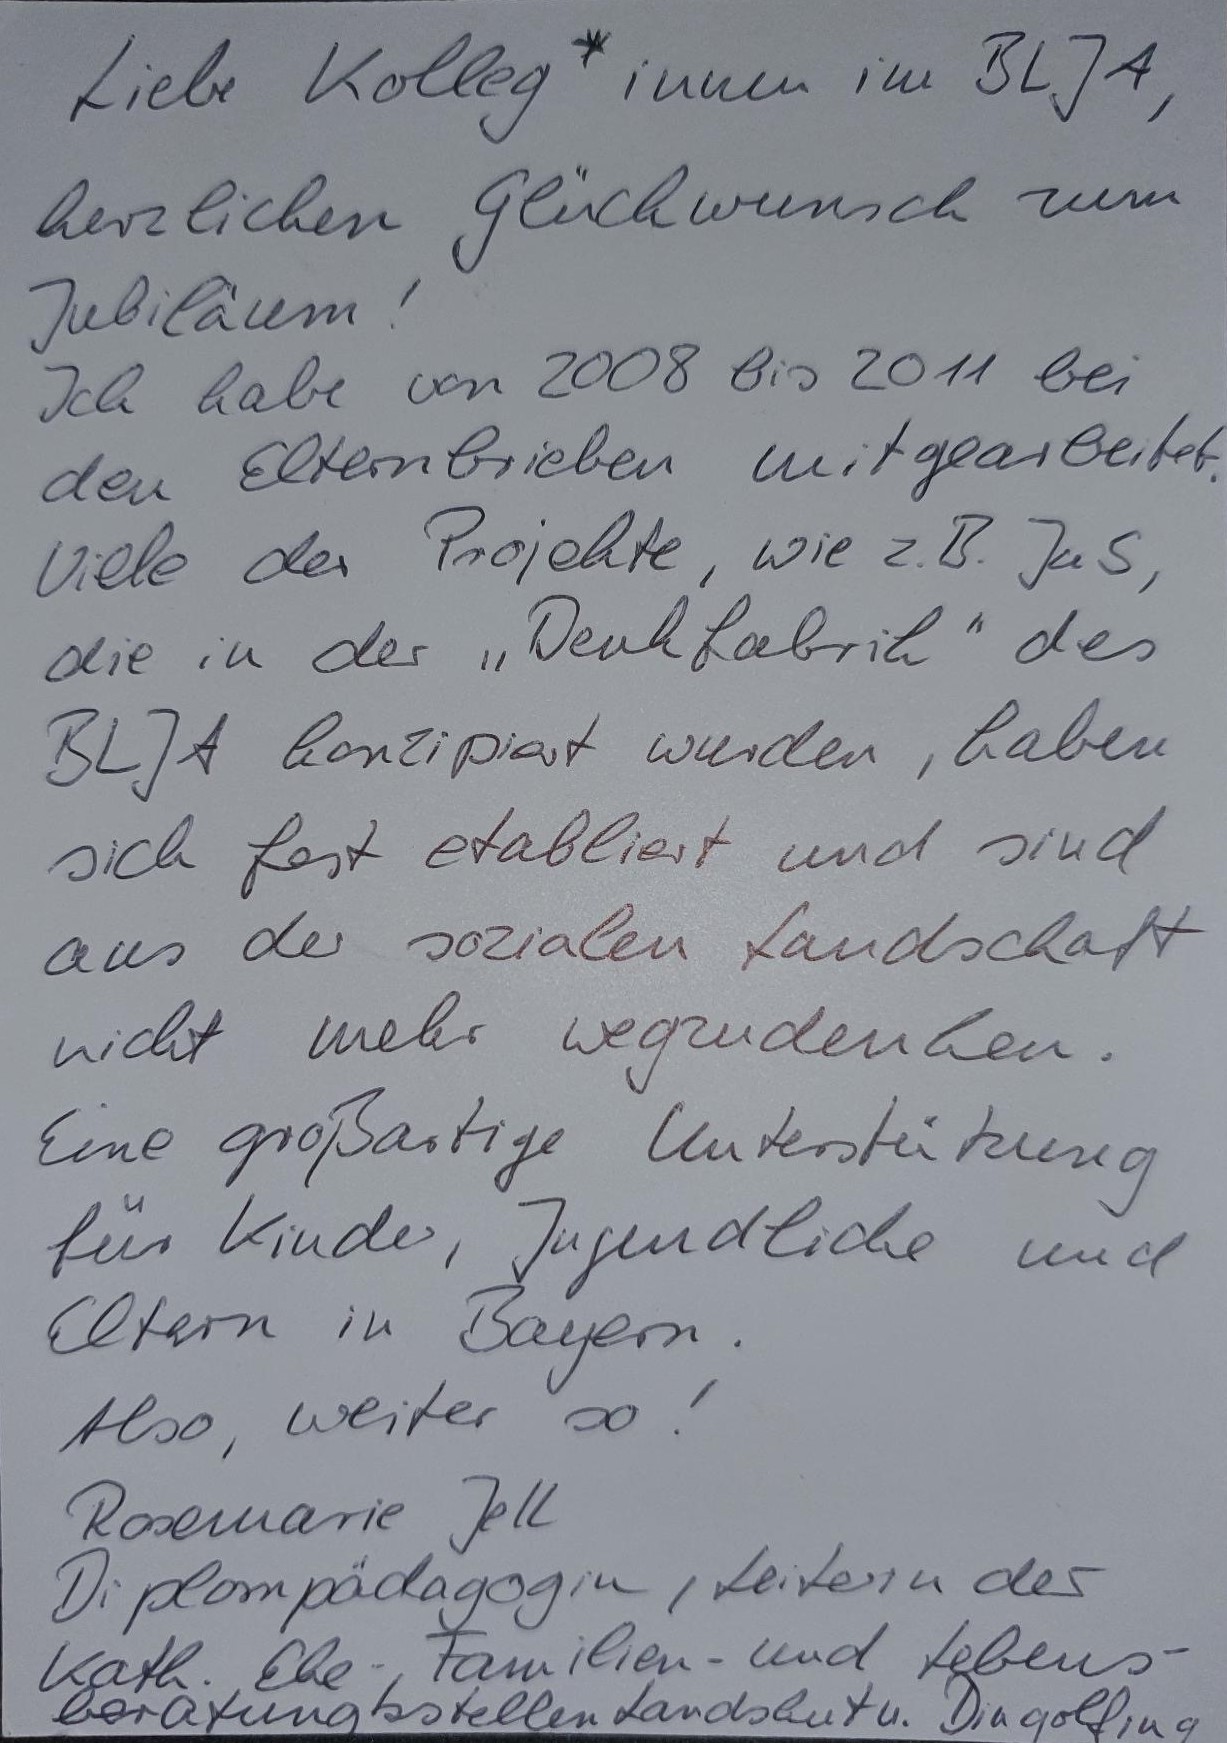 Liebe Kolleg*innen im BLJA,
herzlichen Glückwunsch zum
Jubiläum!
Ich habe von 2008 bis 2011 bei
den Elternbriefen mitgearbeitet.
Viele der Projekte, wie z.B. JaS,
die in der „Denkfabrik" des
BLJA konzipiert wurden, haben
sich fest etabliert und sind
aus der sozialen Landschaft
nicht mehr wegzudenken.
Eine großartige Unterstützung
für Kinder, Jugendliche und
Eltern in Bayern.
Also, weiter so!
Rosemarie Jell
Diplompädagogin, Leiterin der
Kath. Ehe-, Familien- und Lebens-
beratungsstellen Landshut u. Dingolfing